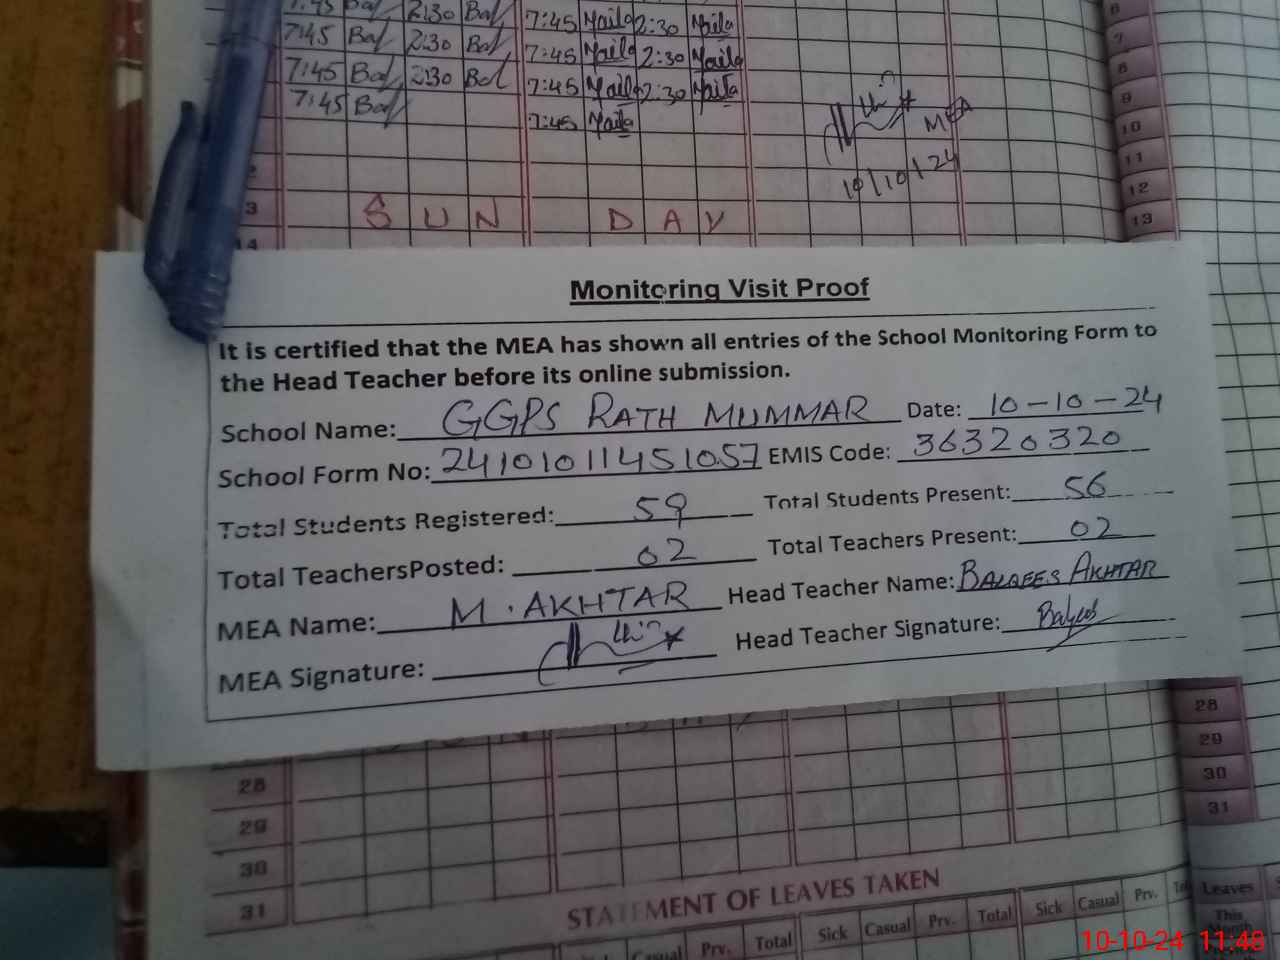 7:45 Bal 2:30 Bal 7:45 Maila 2:30 Maila
7:45 Bal 2:30 Bal 7:45 Maila 2:30 Maila
7:45 Bal 2:30 Bal 7:45 Maila 2:30 Maila
7:45 Bal 7:45 Maila
MEA
10/10/24
6
7
8
9
10
11
12
13
SUN DAY
Monitoring Visit Proof
It is certified that the MEA has shown all entries of the School Monitoring Form to
the Head Teacher before its online submission.
School Name: GGPS RATH MUMMAR Date: 10-10-24
School Form No: 24101011451057 EMIS Code: 36320320
Total Students Registered: 59 Total Students Present: 56
Total TeachersPosted: 02 Total Teachers Present: 02
MEA Name: M. AKHTAR Head Teacher Name: BALQEES AKHTAR
MEA Signature: Head Teacher Signature: Balqees
28 28
29 29
30 30
31 31
STATEMENT OF LEAVES TAKEN
Casual Prv. Total Sick Casual Prv. Total Sick Casual Prv. Leaves
This
10-10-24 11:48